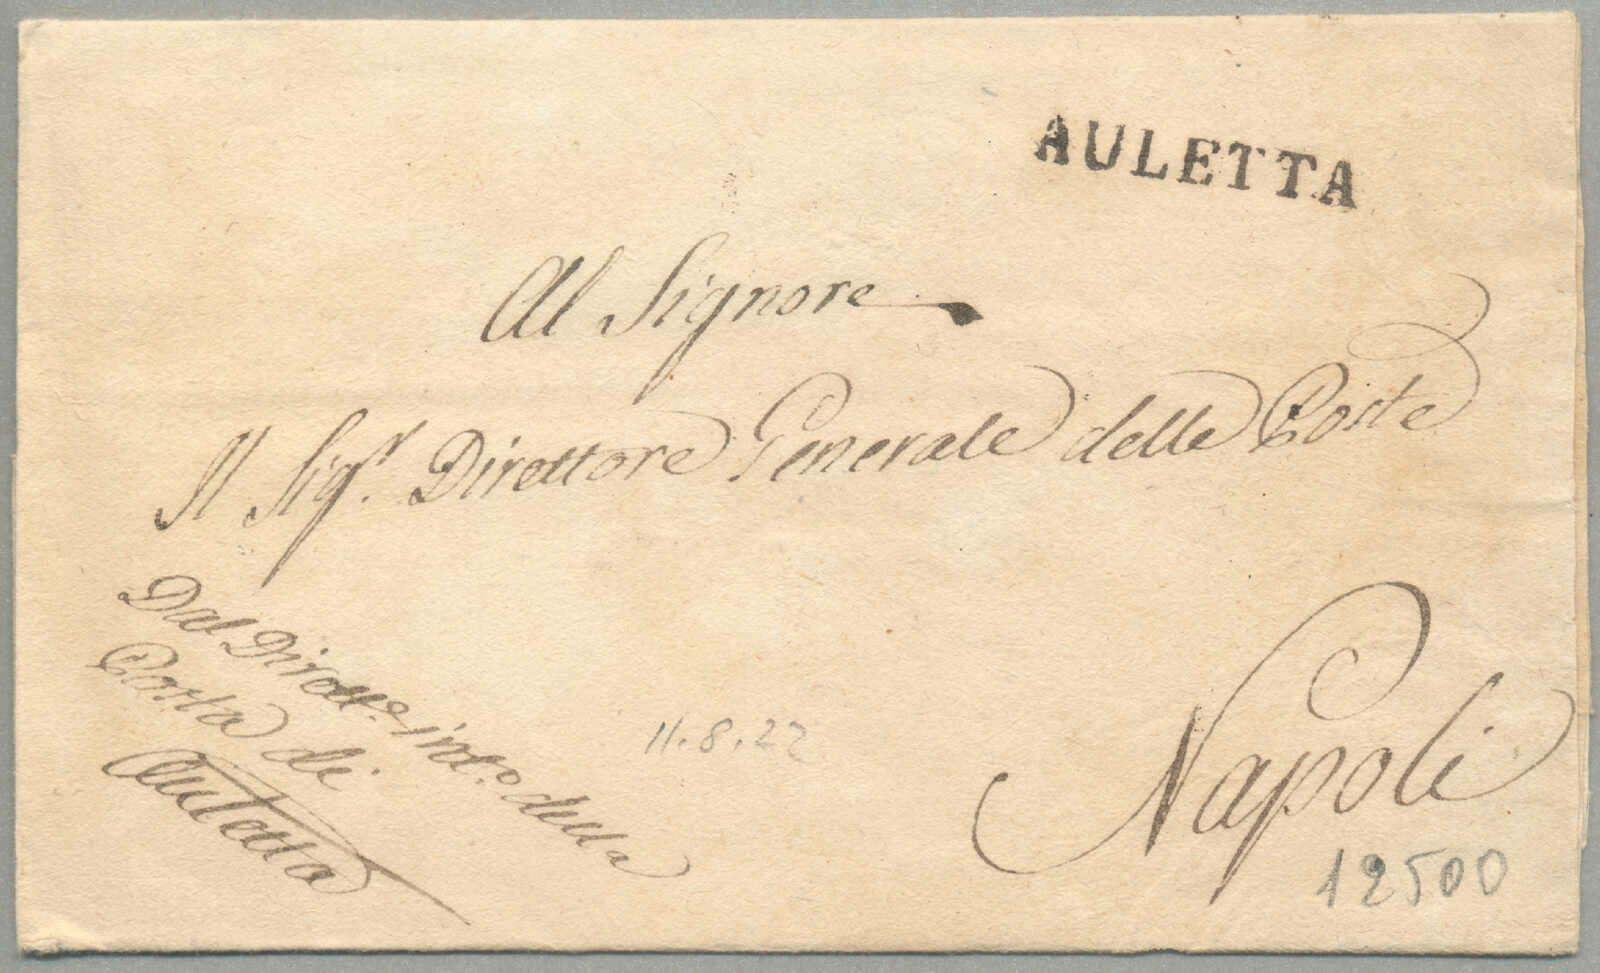 AULETTA
Al Signore
Il Sig.r Direttore Generale delle Poste
Dal Dirett.e int.o della
Posta di
Auletta
11.8.22
Napoli
12500